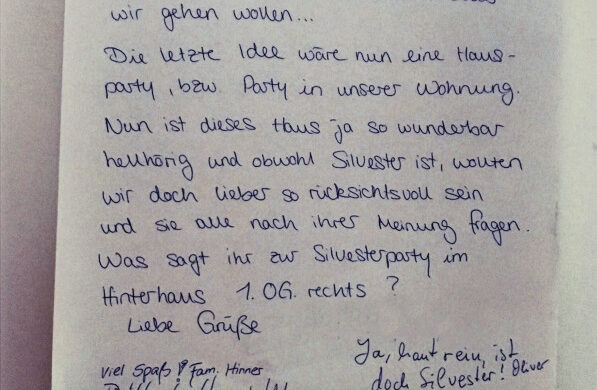 wir gehen wollen...
Die letzte Idee wäre nun eine Haus-
party, bzw. Party in unserer Wohnung.
Nun ist dieses Haus ja so wunderbar
hellhörig und obwohl Silvester ist, wollten
wir doch lieber so rücksichtsvoll sein
und sie alle nach ihrer Meinung fragen.
Was sagt ihr zur Silvesterparty im
Hinterhaus 1. OG. rechts?
Liebe Grüße
Ja, haut rein, ist
doch Silvester! Oliver
Viel Spaß! Fam. Hinner